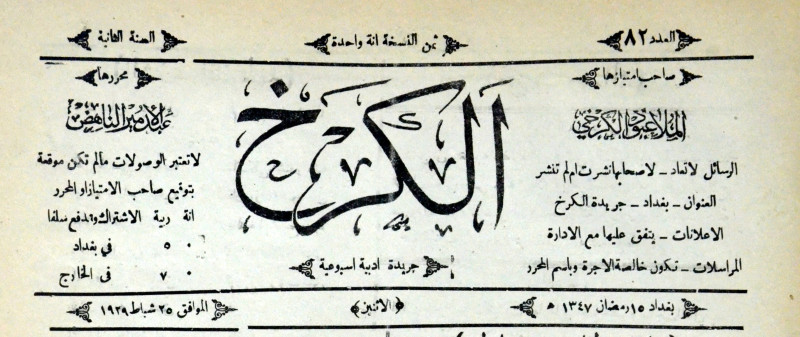 العدد ٨٢
ثمن النسخة انة واحدة
السنة الثانية
صاحب امتيازها
الملا عبود الكرخي
الرسائل لاتعاد ــ لاصحابها نشرت ام لم تنشر
العنوان ــ بغداد ــ جريدة الكرخ
الاعلانات ــ يتفق عليها مع الادارة
المراسلات ــ تكون خالصة الاجرة وباسم المحرر
الكرخ
جريدة ادبية اسبوعية
محررها
عبد الامير الناهض
لاتعتبر الوصولات مالم تكن موقعة
بتوقيع صاحب الامتياز او المحرر
انة ربية الاشتراك وتدفع سلفا
٠ ٥ في بغداد
٠ ٧ في الخارج
بغداد ١٥ رمضان ١٣٤٧ ه
(الاثنين)
الموافق ٢٥ شباط ١٩٢٩